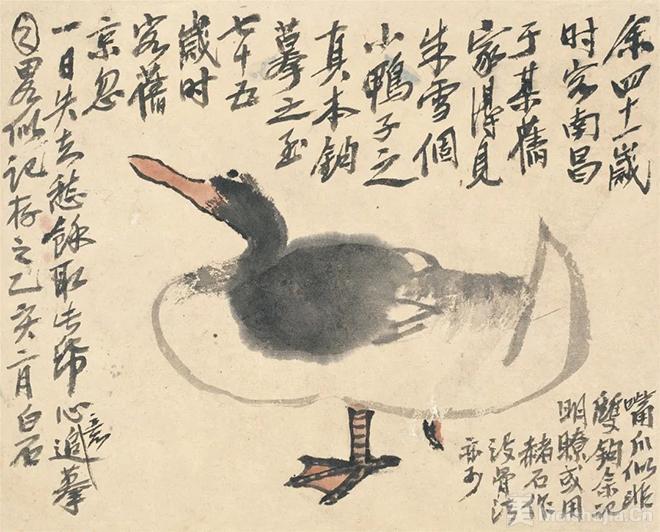 余四十一歲
时客南昌
于某舊
家得見
朱雪個
小鴨子之
真本鉤
摹之至
七十五
歲时
客舊
京忽
一日失去愁餘取此紙心意追摹
之畧似記存之乙亥六月白石
嘴爪似非
雙鉤余記
明瞭或用
赭石作
沒骨法
亦可
Meishujia.Cn